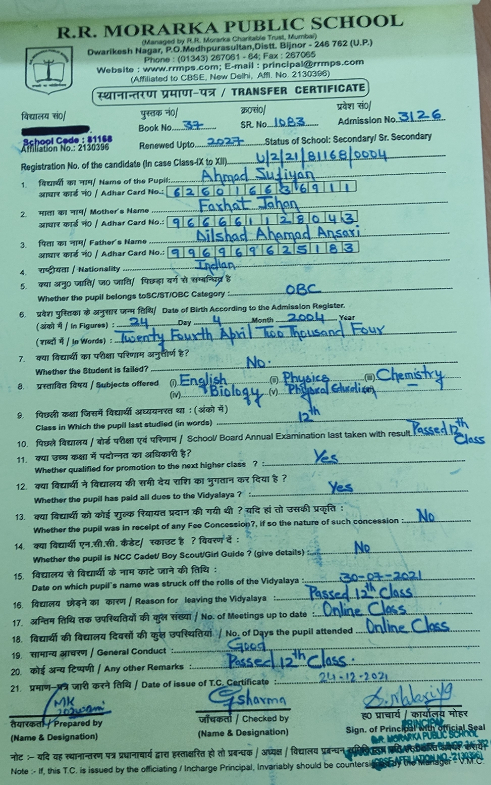 R.R. MORARKA PUBLIC SCHOOL
(Managed by R.R. Morarka Charitable Trust, Mumbai)
Dwarikesh Nagar, P.O.Medhpurasultan,Distt. Bijnor - 246 762 (U.P.)
Phone : (01343) 267061 - 64; Fax : 267065
Website : www.rrmps.com; E-mail : principal@rrmps.com
(Affiliated to CBSE, New Delhi, Affl. No. 2130396)
स्थानान्तरण प्रमाण-पत्र / TRANSFER CERTIFICATE
विद्यालय सं0/ पुस्तक सं0/ क्र0सं0/ प्रवेश सं0/
Book No. 37 SR. No. 1083 Admission No. 3126
School Code : 81168
Affiliation No.: 2130396 Renewed Upto 2027 Status of School: Secondary/ Sr. Secondary
Registration No. of the candidate (In case Class-IX to XII) U/2/21/81168/0004
1. विद्यार्थी का नाम/ Name of the Pupil: Ahmad Sufiyan
आधार कार्ड नं0 / Adhar Card No.: 626016636911
2. माता का नाम/ Mother's Name Farhat Jahan
आधार कार्ड नं0 / Adhar Card No.: 966661128043
3. पिता का नाम/ Father's Name Dilshad Ahamad Ansari
आधार कार्ड नं0 / Adhar Card No.: 996969625183
4. राष्ट्रीयता / Nationality Indian
5. क्या अनु0 जाति/ ज0 जाति/ पिछड़ा वर्ग से सम्बन्धित है
Whether the pupil belongs toSC/ST/OBC Category : OBC
6. प्रवेश पुस्तिका के अनुसार जन्म तिथि/ Date of Birth According to the Admission Register.
(अंको में / In Figures) : 24 Day 4 Month 2004 Year
(शब्दों में / In Words) : Twenty Fourth April Two Thousand Four
7. क्या विद्यार्थी का परीक्षा परिणाम अनुत्तीर्ण है?
Whether the Student is failed? No.
8. प्रस्तावित विषय / Subjects offered (i) English (ii) Physics (iii) Chemistry
(iv) Biology (v) Physical Education
9. पिछली कक्षा जिसमें विद्यार्थी अध्ययनरत था : (अंको में)
Class in Which the pupil last studied (in words) 12th
10. पिछले विद्यालय / बोर्ड परीक्षा एवं परिणाम / School/ Board Annual Examination last taken with result Passed 12th Class
11. क्या उच्च कक्षा में पदोन्नत का अधिकारी है?
Whether qualified for promotion to the next higher class ? : Yes
12. क्या विद्यार्थी ने विद्यालय की सभी देय राशि का भुगतान कर दिया है ?
Whether the pupil has paid all dues to the Vidyalaya ? : Yes
13. क्या विद्यार्थी को कोई शुल्क रियायत प्रदान की गयी थी ? यदि हां तो उसकी प्रकृति :
Whether the pupil was in receipt of any Fee Concession?, if so the nature of such concession : No
14. क्या विद्यार्थी एन.सी.सी. कैडेट/ स्काउट है ? विवरण दें :
Whether the pupil is NCC Cadet/ Boy Scout/Girl Guide ? (give details) : No
15. विद्यालय से विद्यार्थी के नाम काटे जाने की तिथि :
Date on which pupil's name was struck off the rolls of the Vidyalaya : 30-07-2021
16. विद्यालय छोड़ने का कारण / Reason for leaving the Vidyalaya Passed 12th Class
17. अन्तिम तिथि तक उपस्थितियों की कुल संख्या / No. of Meetings up to date : Online Class
18. विद्यार्थी की विद्यालय दिवसों की कुल उपस्थितियां / No. of Days the pupil attended Online Class
19. सामान्य आचरण / General Conduct : Good
20. कोई अन्य टिप्पणी / Any other Remarks : Passed 12th Class.
21. प्रमाण-पत्र जारी करने तिथि / Date of issue of T.C. Certificate 24-12-2021
तैयारकर्ता / Prepared by जाँचकर्ता / Checked by ह0 प्राचार्य / कार्यालय मोहर
(Name & Designation) (Name & Designation) Sign. of Principal with official Seal
PRINCIPAL
R.R. MORARKA PUBLIC SCHOOL
नोट :- यदि यह स्थानान्तरण पत्र प्रधानाचार्य द्वारा हस्ताक्षरित हो तो प्रबन्धक / अध्यक्ष / विद्यालय प्रबन्धन
Note :- If, this T.C. is issued by the officiating / Incharge Principal, Invariably should be countersigned by the Manager - V.M.C.